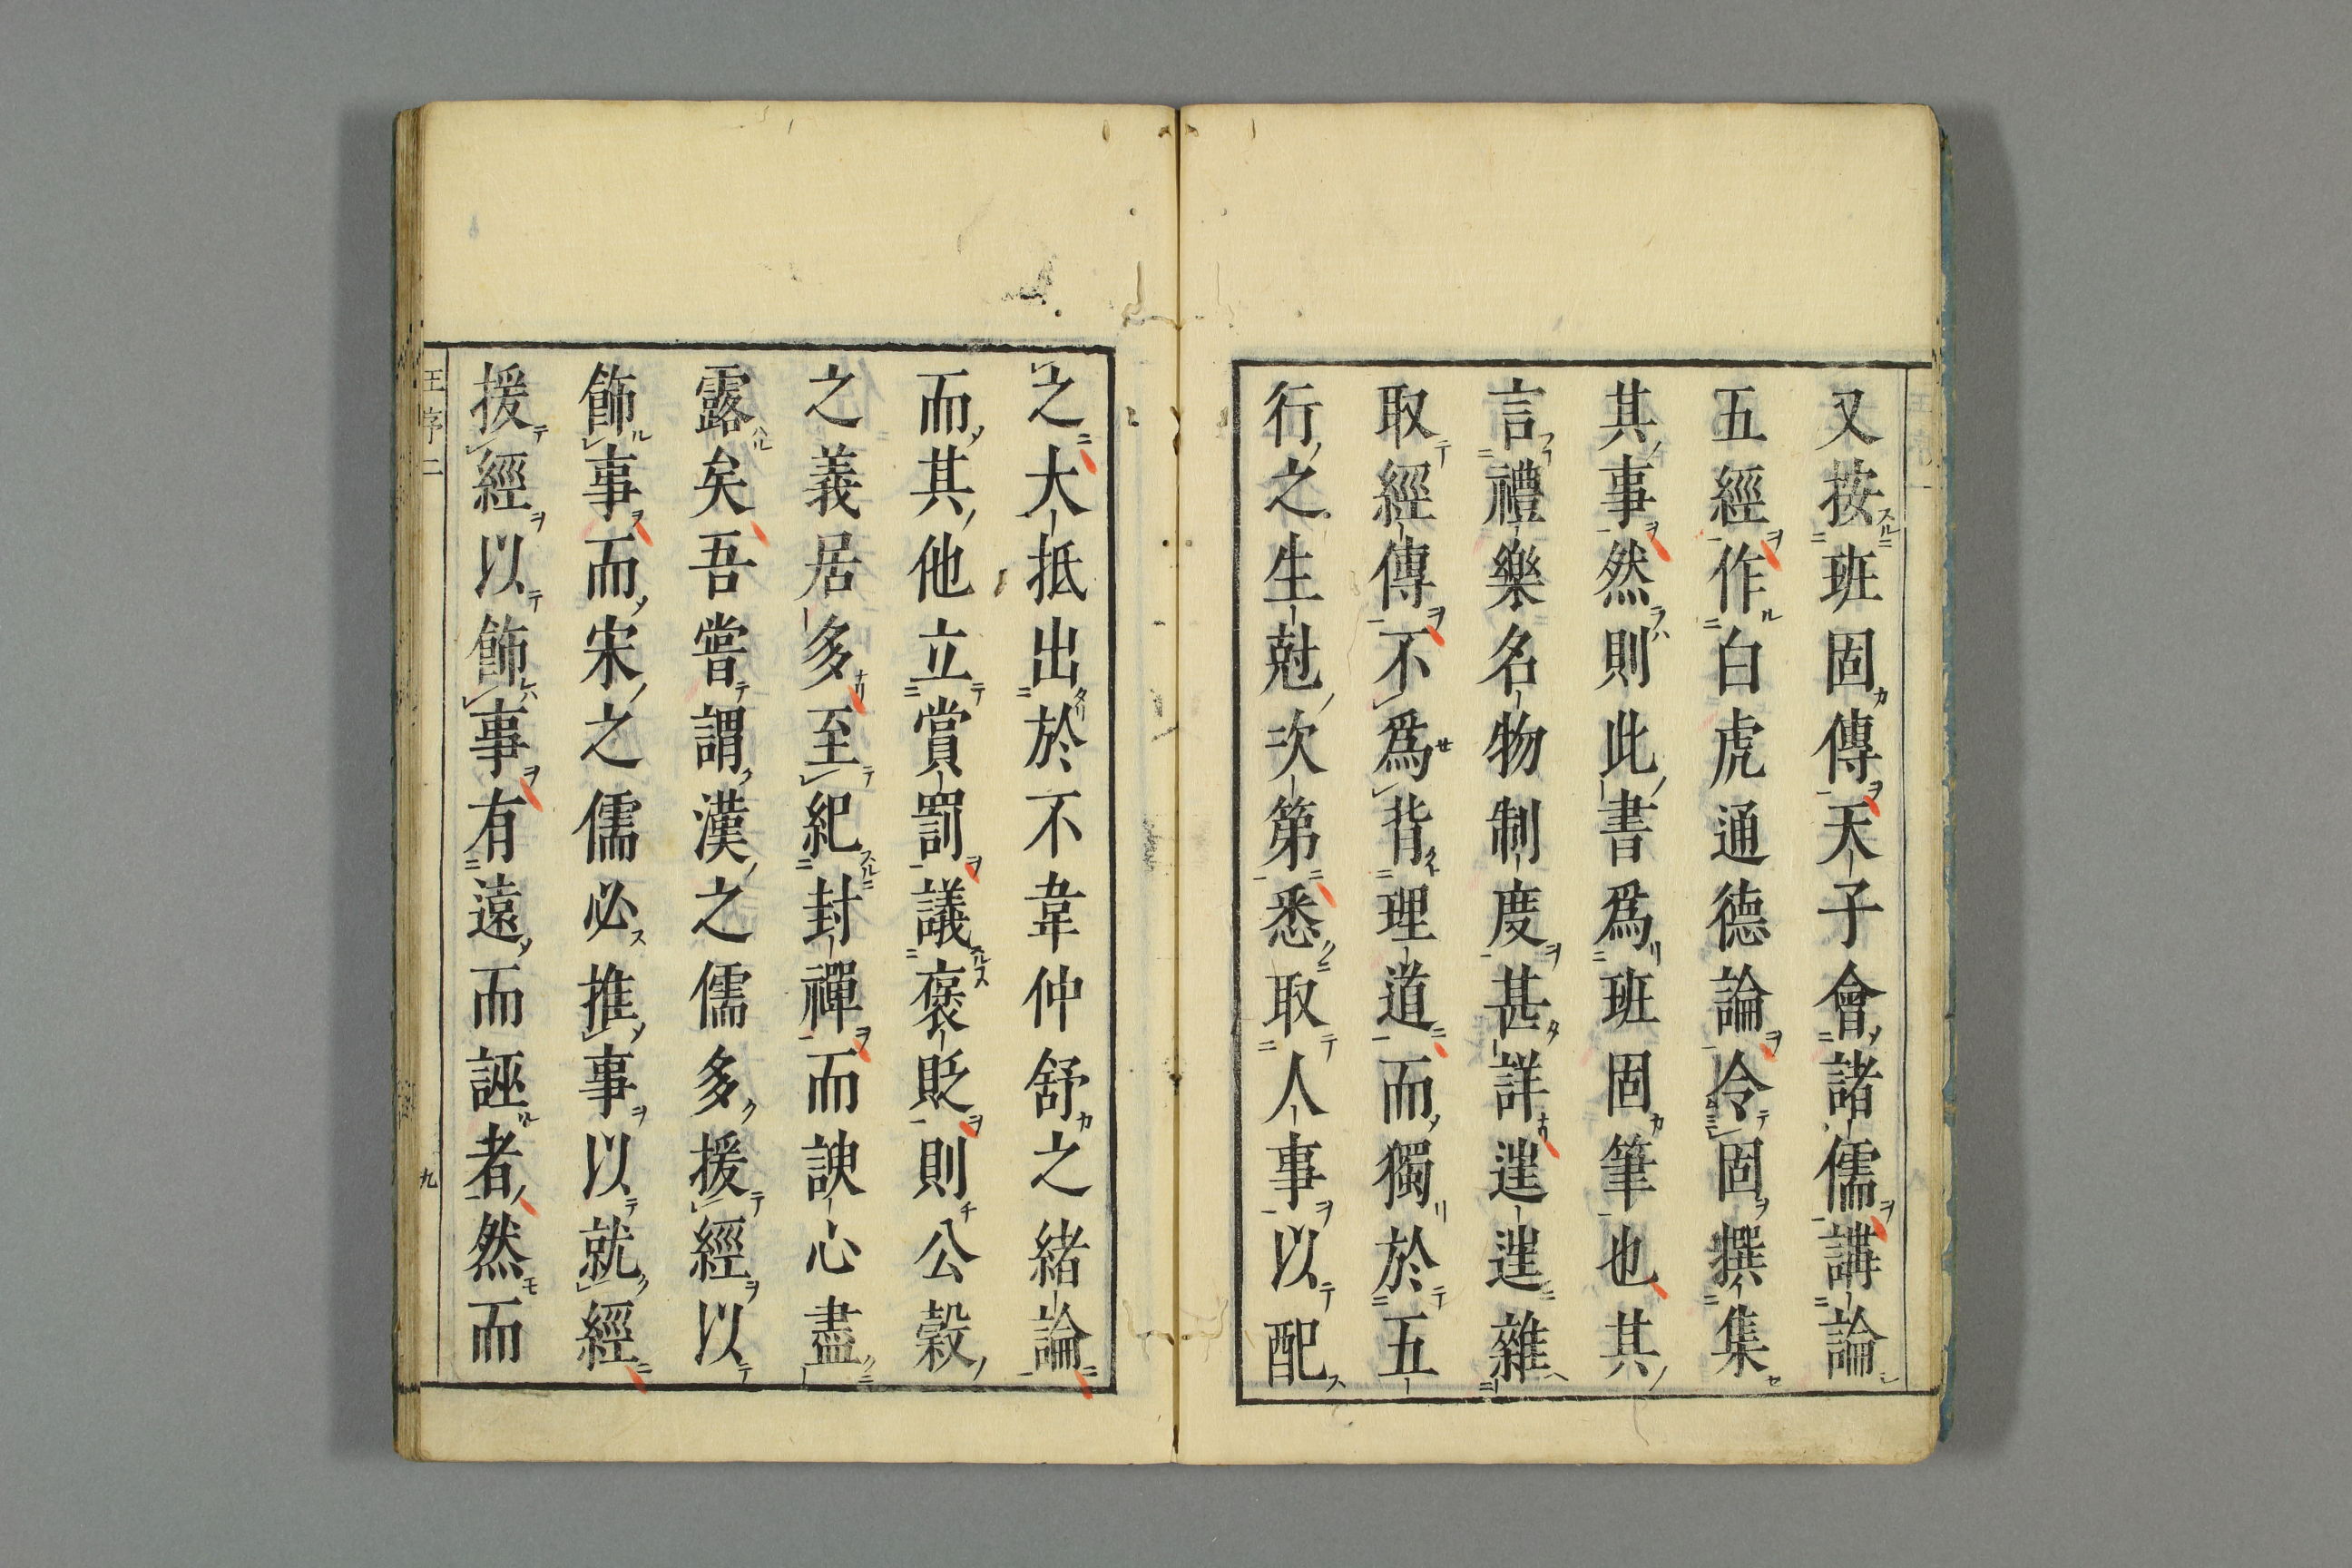 又按班固傳天子會諸儒講論
五經作白虎通德論冷固撰集
其事然則此書爲班固筆也其
言禮樂名物制度甚詳暹暹雜
取經傳不爲背理道而獨於五
行之生尅次第悉取人事以配
之大抵出於不韋仲舒之緒論
而其他立賞罰議褒貶則公穀
之義居多至紀封禪而諛心盡
露矣吾嘗謂漢之儒多援經以
飾事而宋之儒必推事以就經
援經以飾事有遠而誣者然而
王序二
九